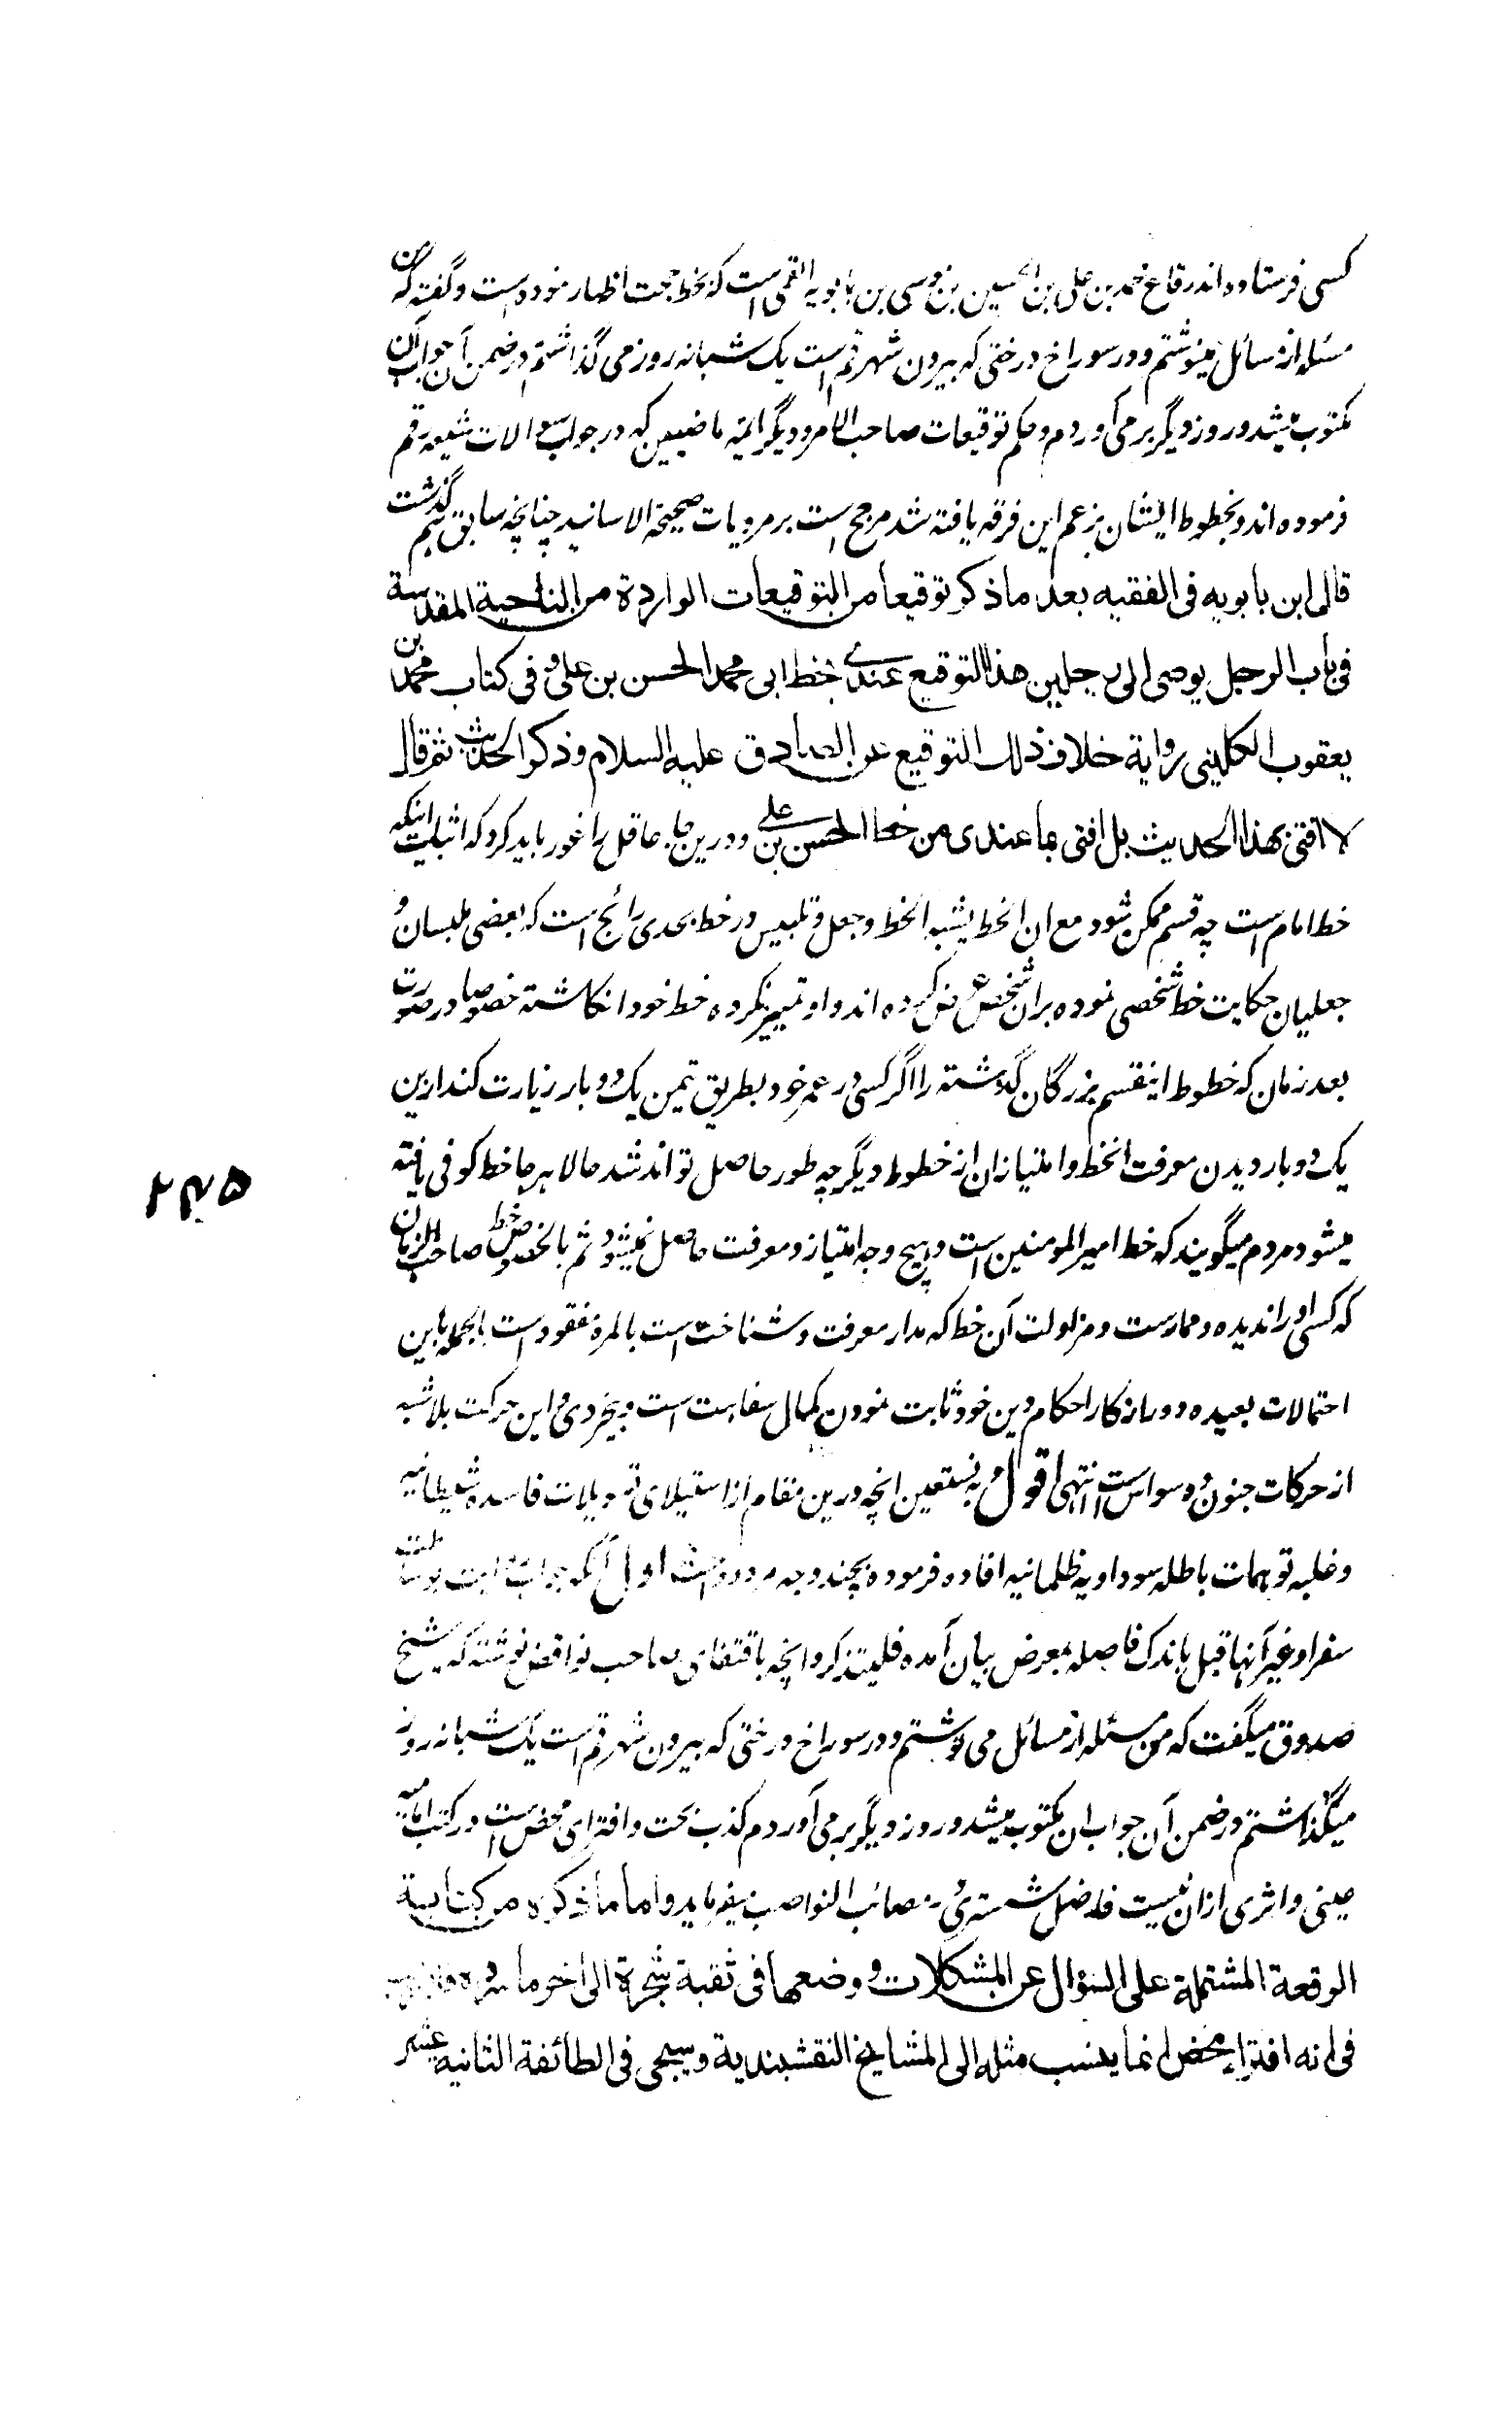 کسی فرستاده اند رقاع محمد بن علی بن الحسین بن موسی بن بابویه القمی است که بخط حجت اظهار نموده است و گفته که من
مسئله از مسائل مینوشتم و در سوراخ درختی که بیرون شهر قم است یک شبانه روز می گذاشتم در ضمن آن جواب آن
مکتوب میشد و روز دیگر بر می آوردم و حکم توقیعات صاحب الامر و دیگر ائمه ماضیین که در جواب سوالات شیعه رقم
فرموده اند و بخطوط ایشان بزعم این فرقه یافته شد مرجح است بر مرویات صحیحة الاسانید چنانچه سابق هم گذشت
قال ابن بابویه فی الفقیه بعد ما ذکر توقیعا من التوقیعات الواردة من الناحیة المقدسة
فی باب الرجل یوصی الی رجلین هذا التوقیع عندی بخط ابی محمد الحسن بن علی و فی کتاب محمد بن
یعقوب الکلینی روایة خلاف ذلک التوقیع عن الصادق علیه السلام و ذکر الحدیث ثم قال
لا افتی بهذا الحدیث بل افتی بما عندی من خط الحسن بن علی و درین جا عاقل را غور باید کرد که اثبات اینکه
خط امام است چه قسم ممکن شود مع ان الخط یشبه الخط و جعل و تلبیس در خط بحدی رائج است که بعضی ملبسان و
جعلیان حکایت خط شخصی نموده بر آن شخص عرض کرده اند و او تمییز نکرده خط خود انگاشته خصوصا در صورت
بعد زمان که خطوط اینقسم بزرگان گذشته را اگر کسی در عمر خود بطریق تیمن یک دو بار زیارت کند ازین
یک دو بار دیدن معرفت انخط و امتیاز آن از خطوط دیگر چه طور حاصل تواند شد حالا هر جا خط کوفی یافته
میشود مردم میگویند که خط امیر المومنین است و هیچ وجه امتیاز و معرفت حاصل نمیشود ثم بالخصوص خط صاحب الزمان
که کسی او را ندیده و ممارست و مزاولت آن خط که مدار معرفت و شناخت است بالمره مفقود است بالجمله باین
احتمالات بعیده دور از کار احکام دین خود ثابت نمودن کمال سفاهت است و بیخردی و این حرکت بلا شبه
از حرکات جنون و وسواس است انتهی اقول و به نستعین انچه درین مقام از استیلای تسویلات فاسده شیطانیه
و غلبه توهمات باطله سوداویه ظلمانیه افاده فرموده بچند وجه مردود است اول آنکه جواب بوساطت
سفرا و غیر آنها قبل باندک فاصله بمعرض بیان آمده فلیتذکر و انچه باقتفای صاحب نواقض نوشته که شیخ
صدوق میگفت که من مسئله از مسائل می نوشتم و در سوراخ درختی که بیرون شهر قم است یک شبانه روز
میگذاشتم در ضمن آن جواب ان مکتوب میشد و روز دیگر بر می آوردم کذب بحت و افترای محض است در کتب امامیه
عینی و اثری ازان نیست فاضل شستری در مصائب النواصب میفرماید و اما ما ذکره من کتابة
الرقعة المشتملة علی السؤال عن المشکلات و وضعها فی ثقبة شجرة الی اخر ما
فی انه افتراء محض انما ینسب مثله الی المشایخ النقشبندیة و سیجی فی الطائفة الثانیه عشر
۲۴۵